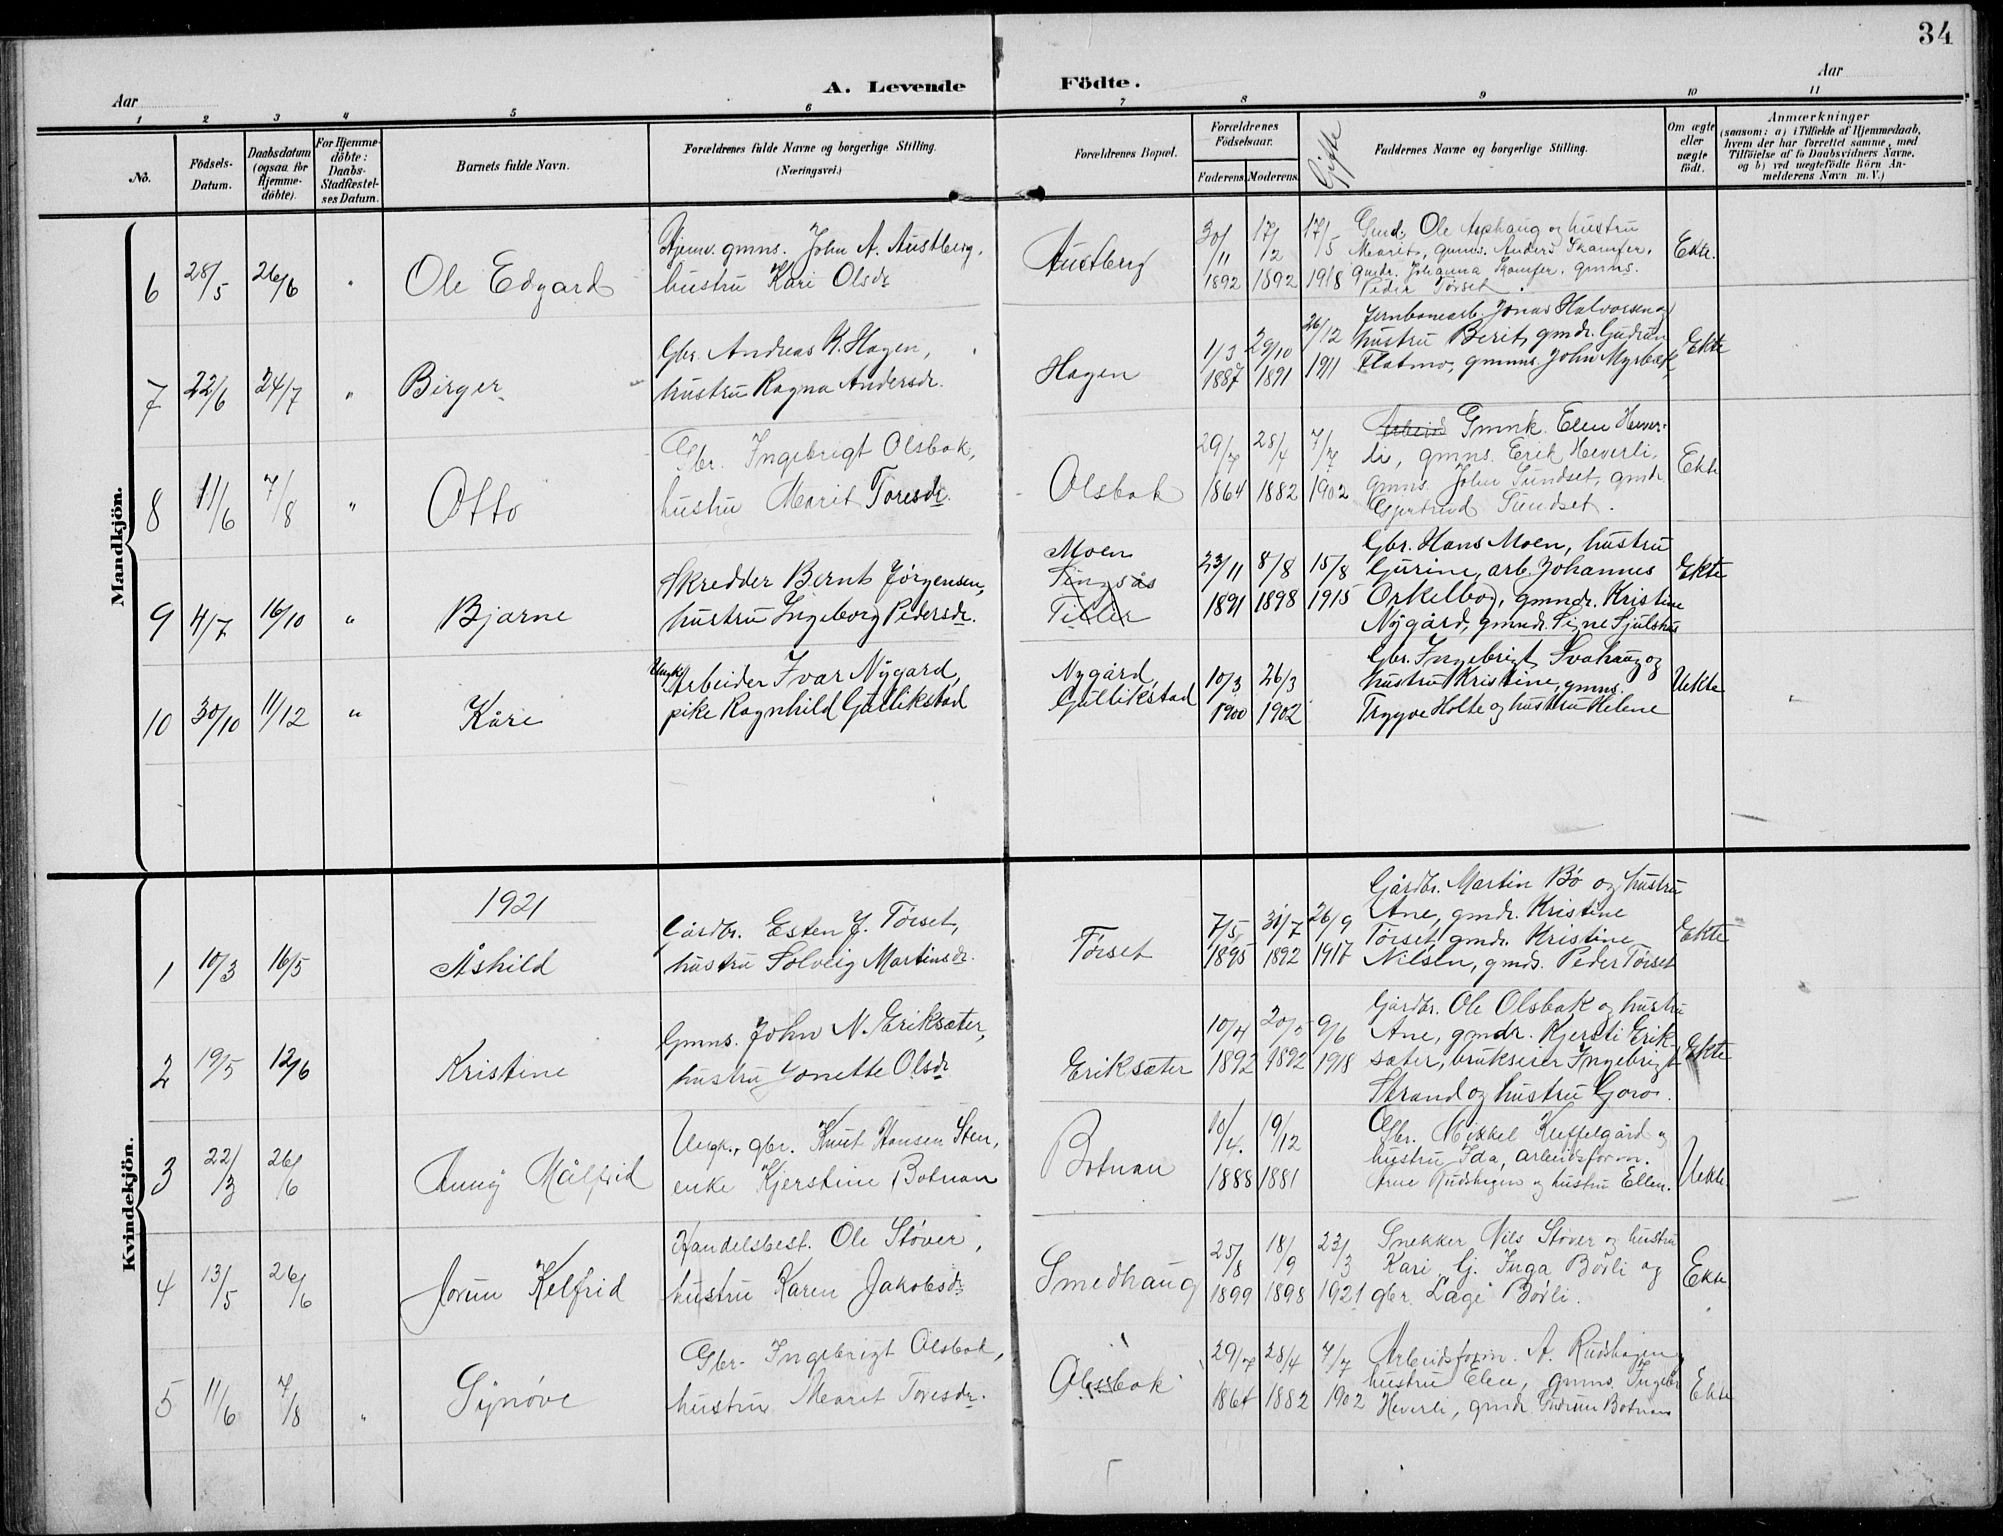 34
A. Levende Födte.
Aar
Aar
1 2 3 4 5 6 7 8 9 10 11
No.
Födsels-
Datum.
Daabsdatum
(ogsaa for
Hjemme-
döbte).
For Hjemme-
döbte:
Daabs-
Stadfæstel-
ses Datum.
Barnets fulde Navn.
Forældrenes fulde Navne og borgerlige Stilling.
(Næringsvei.)
Forældrenes Bopæl.
Forældrenes
Födselsaar.
Faderens. Moderens.
Gifte
Faddernes Navne og borgerlige Stilling.
Om ægte
eller
uægte
födt.
Anmærkninger
(saasom: a) i Tilfælde af Hjemmedaab,
hvem der har forrettet samme, med
Tilföielse af to Daabsvidners Navne,
og b) ved uægtefödte Börn An-
melderens Navn m. V.)
Mandkjön.
6 28/5 26/6 " Ole Edgard
Hjemv. gmns. John A. Austberg,
hustru Kari Olsdr.
Austberg
30/11 1892 17/12 1892 17/5 1918
Gmd. Ole Asphaug og hustru
Marit, gmns. Anders Kamfer,
gmdr. Johanna Kamfer, gmns.
Peder Tørset.
Ekte.
7 22/6 24/7 " Birger
Gbr. Andreas K. Hagen,
hustru Ragna Andersdr.
Hagen
1/3 1887 29/10 1891 26/12 1911
Jernbanearb. Jonas Halvorsen og
hustru Berit, gmdr. Gudrun
Flatmo, gmns. John Myrbæk
Ekte
8 11/6 7/8 " Otto
Gbr. Ingebrigt Olsbak,
hustru Marit Toresdr.
Olsbak
29/7 1864 28/4 1882 7/7 1902
Arbeid Gmnk. Elen Hever-
li, gmns. Erik Heverli,
gmns. John Sundset, gmdr.
Gjertrud Sundset.
Ekte
9 4/7 16/10 " Bjarne
Skredder Bernt Jørgensen,
hustru Ingeborg Pedersdr.
Moen
Singsås
Tiller
23/11 1891 8/8 1898 15/8 1915
Gbr. Hans Moen, hustru
Gurine, arb. Johannes
Orkelbog, gmndr. Kristine
Nygård, gmndr. Signe Sjulshus
Ekte
10 30/10 11/12 " Kåre
Ungk. Arbeider Ivar Nygard,
pike Ragnhild Gullikstad
Nygård,
Gullikstad
10/3 1900 26/3 1902
Gbr. Ingebrigt Svahaug og
hustru Kristine, gmns.
Trygve Holte og hustru Helene
Uekte
Kvindekjön.
1921
1 10/3 16/5 Åshild
Gårdbr. Esten J. Tørset,
hustru Solveig Martinsdr.
Tørset
7/5 1895 31/7 1892 26/9 1917
Gårdbr. Martin Bø og hustru
Ane, gmdr. Kristine
Tørset, gmdr. Kristine
Nilsen, gmds. Peder Tørset
Ekte
2 19/5 12/6 Kristine
Gmns. John N. Eriksæter,
hustru Jonette Olsdr
Eriksæter
10/4 1892 20/5 1892 9/6 1918
Gårdbr. Ole Olsbak og hustru
Ane, gmdr. Kjersti Erik-
sæter, brukseier Ingebrigt
Strand og hustru Goro.
Ekte
3 22/3 26/6 Aunny Målfrid
Ungk., gbr. Knut Hansen Sten,
enke Kjerstine Botnan
Botnan
10/4. 1888 19/12 1881
Gbr. Mikkel Kleffelgård og
hustru Ida, arbeidsform.
Arne Rudshagen og hustru Ellen.
Uekte
4 13/5 26/6 Jorun Kelfrid
Handelsbest. Ole Støver,
hustru Karen Jakobsdr
Smedhaug
25/8 1899 18/9 1898 23/3 1921
Snekker Nils Støver og hustru
Kari, Gj. Inga Børli og
gbr. Lage Børli.
Ekte
5 11/6 7/8 " Synøve
Gbr. Ingebrigt Olsbak,
hustru Marit Toresdr.
Olsbak
29/7 1864 28/4 1882 7/7 1902
Arbeidsform. A. Rudshagen,
hustru Elen, gmns. Ingebr
Heverli, gmdr. Gudrun Botnan
Ekte